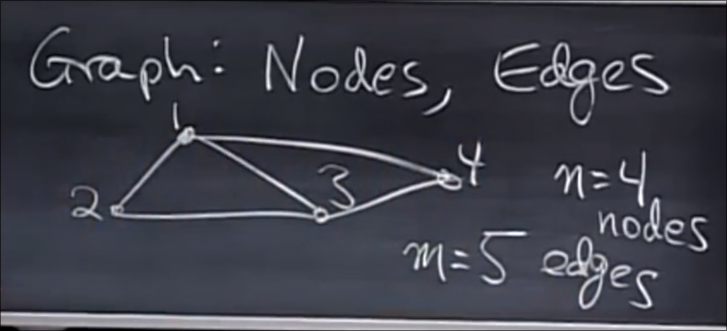 Graph: Nodes, Edges
1
2
3
4
n=4
nodes
m=5 edges